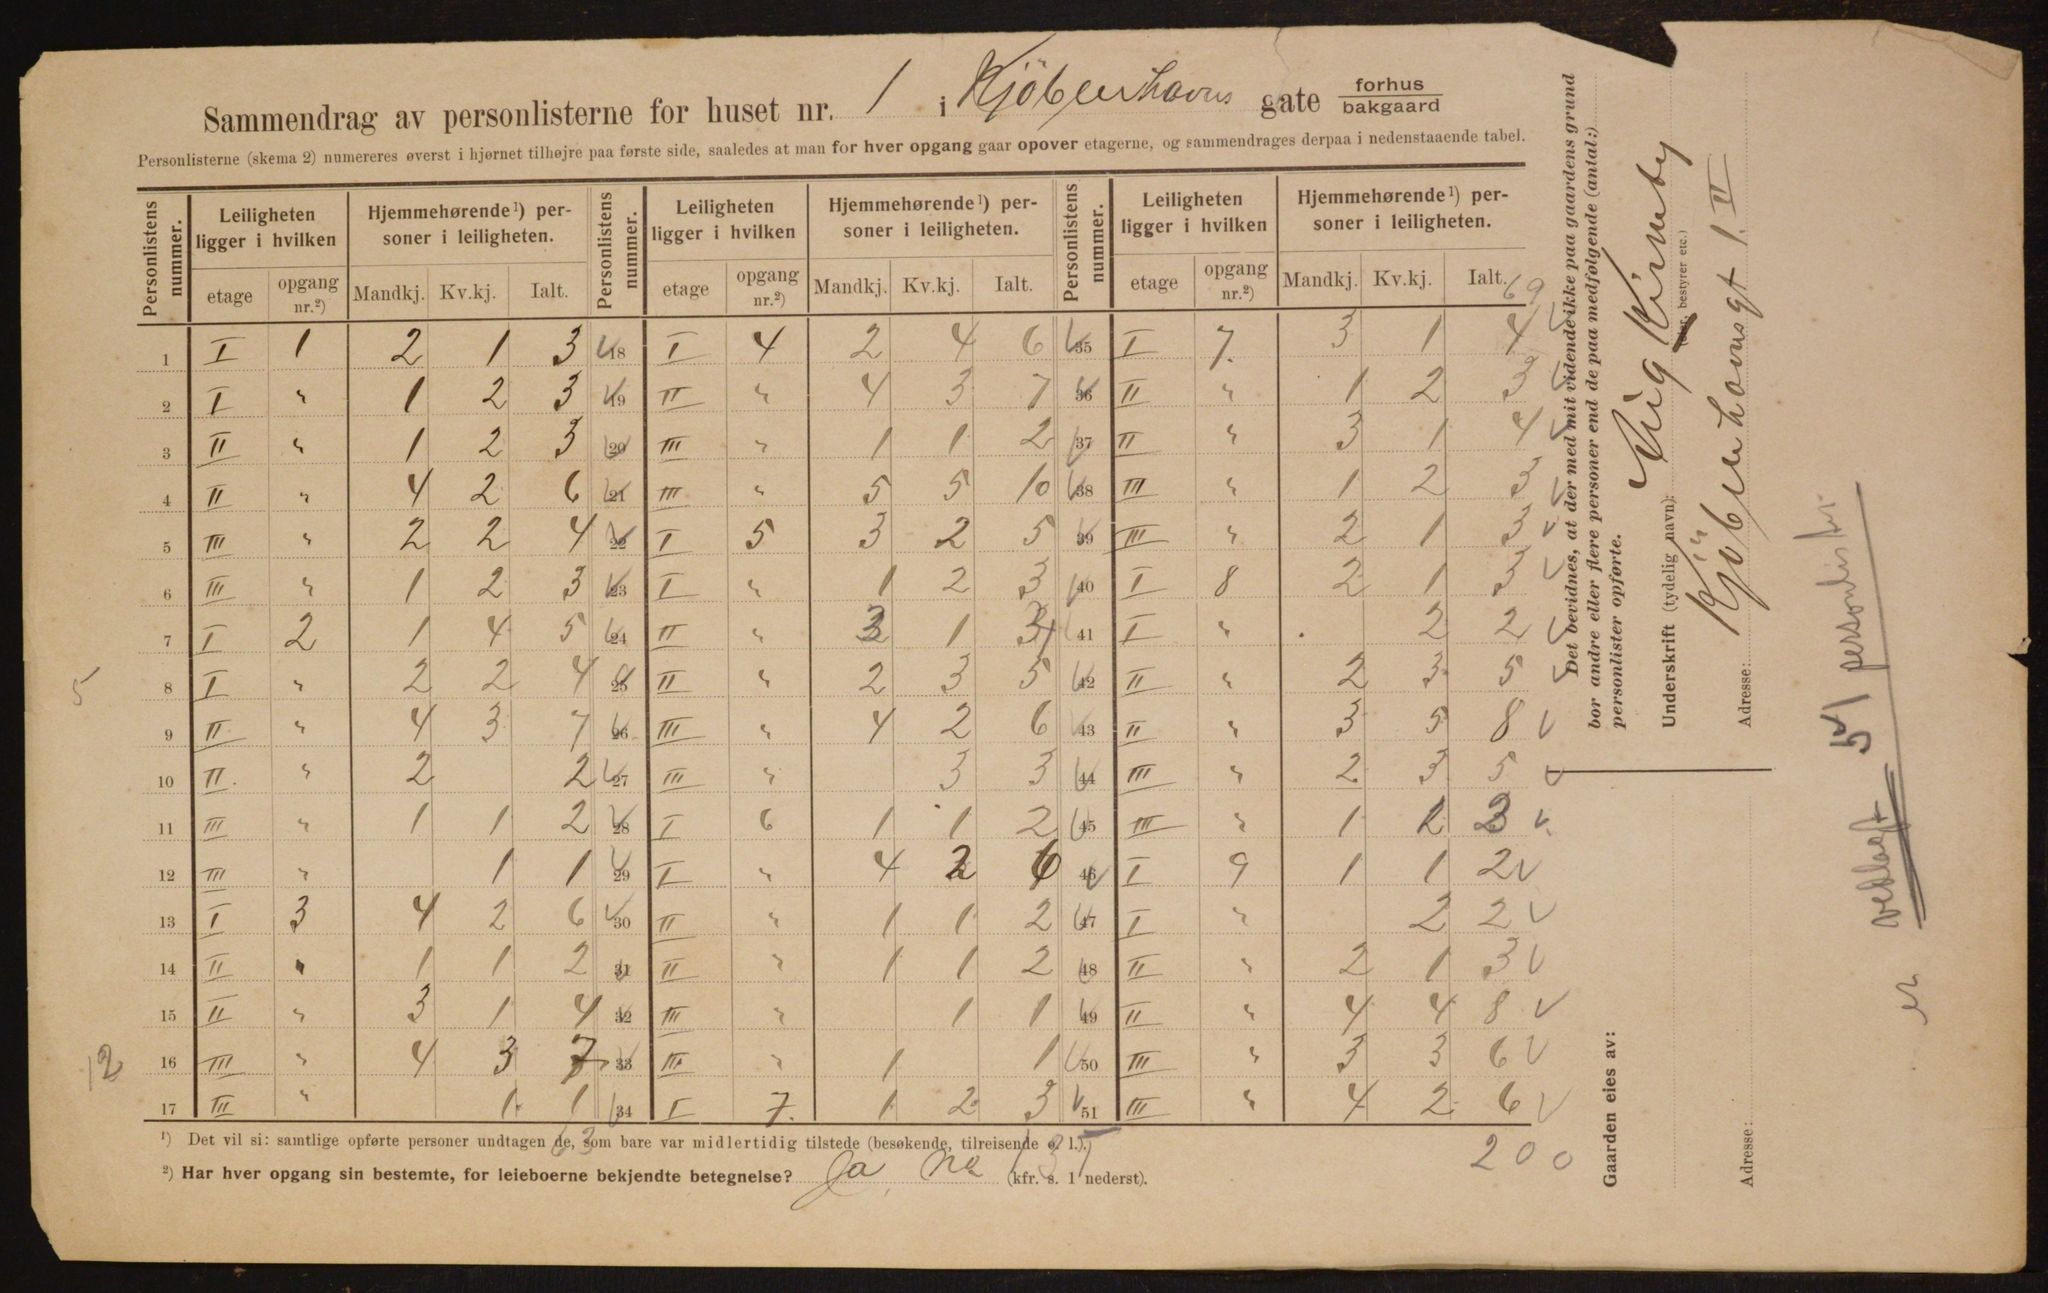 Sammendrag av personlisterne for huset nr. 1 i Kjöbenhavns gate forhus/bakgaard
Personlisterne (skema 2) numereres øverst i hjørnet tilhøjre paa første side, saaledes at man for hver opgang gaar opover etagerne, og sammendrages derpaa i nedenstaaende tabel.
Personlistens nummer. | Leiligheten ligger i hvilken | Hjemmehørende¹) personer i leiligheten. | Personlistens nummer. | Leiligheten ligger i hvilken | Hjemmehørende¹) personer i leiligheten. | Personlistens nummer. | Leiligheten ligger i hvilken | Hjemmehørende¹) personer i leiligheten.
etage | opgang nr.²) | Mandkj. | Kv.kj. | Ialt. | etage | opgang nr.²) | Mandkj. | Kv.kj. | Ialt. | etage | opgang nr.²) | Mandkj. | Kv.kj. | Ialt.
69
1 I 1 2 1 3 √ 18 I 4 2 4 6 √ 35 I 7. 3 1 4 √
2 I " 1 2 3 √ 19 II " 4 3 7 √ 36 II " 1 2 3 √
3 II " 1 2 3 √ 20 III " 1 1 2 √ 37 II " 3 1 4 √
4 II " 4 2 6 √ 21 III " 5 5 10 √ 38 III " 1 2 3 √
5 III " 2 2 4 √ 22 I 5 3 2 5 √ 39 III " 2 1 3 √
6 III " 1 2 3 √ 23 I " 1 2 3 √ 40 I 8 2 1 3 √
7 I 2 1 4 5 √ 24 II " 3 1 4 √ 41 I " . 2 2 √
8 I " 2 2 4 √ 25 II " 2 3 5 √ 42 II " 2 3 5 √
9 II " 4 3 7 √ 26 III " 4 2 6 √ 43 II " 3 5 8 √
10 II " 2 2 √ 27 III " 3 3 √ 44 III " 2 3 5 √
11 III " 1 1 2 √ 28 I 6 1 1 2 √ 45 III " 1 2 3 √
12 III " 1 1 √ 29 I " 4 2 6 √ 46 I 9 1 1 2 √
13 I 3 4 2 6 √ 30 II " 1 1 2 √ 47 I " 2 2 √
14 II " 1 1 2 √ 31 II " 1 1 2 √ 48 II " 2 1 3 √
15 II " 3 1 4 √ 32 III " 1 1 √ 49 II " 4 4 8 √
16 III " 4 3 7 √ 33 III " 1 1 √ 50 III " 3 3 6 √
17 III " 1 1 √ 34 I 7. 1 2 3 √ 51 III " 4 2 6 √
5
12
63
131
200
¹) Det vil si: samtlige opførte personer undtagen de, som bare var midlertidig tilstede (besøkende, tilreisende o. l.).
²) Har hver opgang sin bestemte, for leieboerne bekjendte betegnelse? Ja, (kfr. s. 1 nederst).
Det bevidnes, at der med mit vidende ikke paa gaardens grund
bor andre eller flere personer end de paa medfølgende (antal:)
personlister opførte.
Underskrift (tydelig navn):
(eier, bestyrer etc.)
Adresse: Kjöbenhavnsgt 1. II
Gaarden eies av:
Adresse:
51 personlister
er vedlagt